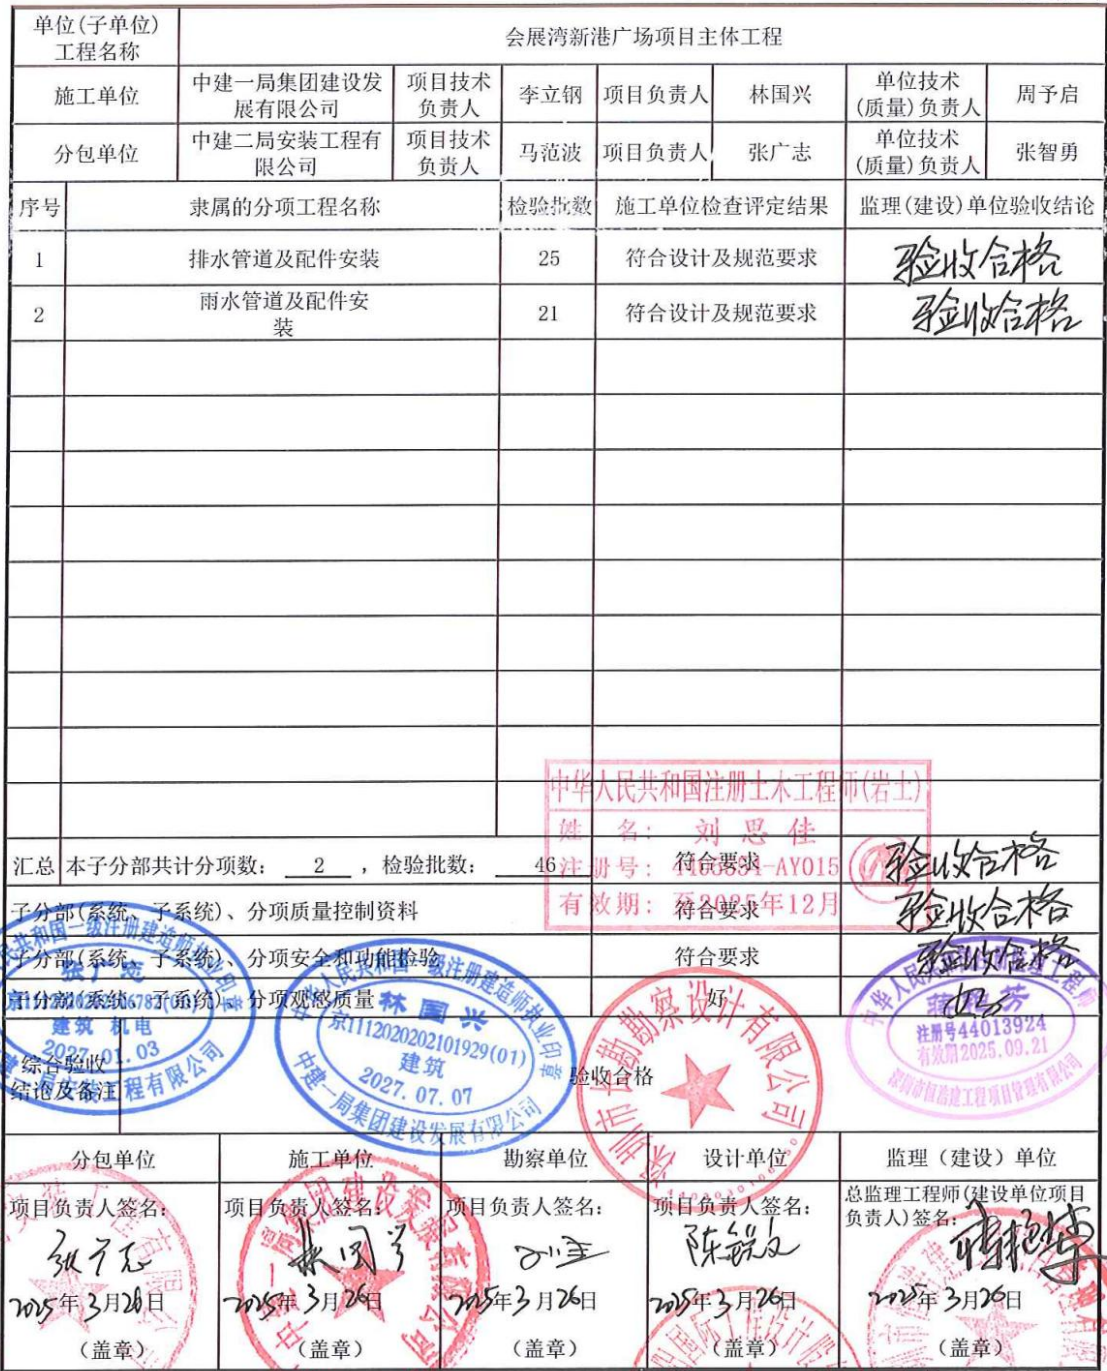 单位(子单位)
工程名称
会展湾新港广场项目主体工程
施工单位
中建一局集团建设发
展有限公司
项目技术
负责人
李立钢
项目负责人
林国兴
单位技术
(质量)负责人
周予启
分包单位
中建二局安装工程有
限公司
项目技术
负责人
马范波
项目负责人
张广志
单位技术
(质量)负责人
张智勇
序号
隶属的分项工程名称
检验批数
施工单位检查评定结果
监理(建设)单位验收结论
1
排水管道及配件安装
25
符合设计及规范要求
验收合格
2
雨水管道及配件安
装
21
符合设计及规范要求
验收合格
汇总
本子分部共计分项数: 2 ,检验批数: 46
符合要求
验收合格
子分部(系统、子系统)、分项质量控制资料
符合要求
验收合格
子分部(系统、子系统)、分项安全和功能检验
符合要求
验收合格
子分部(系统、子系统)、分项观感质量
好
中华人民共和国注册土木工程师(岩土)
姓 名: 刘思佳
注册号: -AY015
有效期: 至2025年12月
张广志
建筑 机电
2027.01.03
中华人民共和国一级注册建造师执业印章
林国兴
京1112020202101929(01)
建筑
2027.07.07
中建一局集团建设发展有限公司
深圳市长勘勘察设计有限公司
注册号44013924
有效期2025.09.21
综合验收
结论及备注
验收合格
分包单位
施工单位
勘察单位
设计单位
监理(建设)单位
项目负责人签名:
张广志
2025年3月26日
(盖章)
项目负责人签名:
林国兴
2025年3月26日
(盖章)
项目负责人签名:
2025年3月26日
(盖章)
项目负责人签名:
2025年3月26日
(盖章)
总监理工程师(建设单位项目
负责人)签名:
2025年3月26日
(盖章)